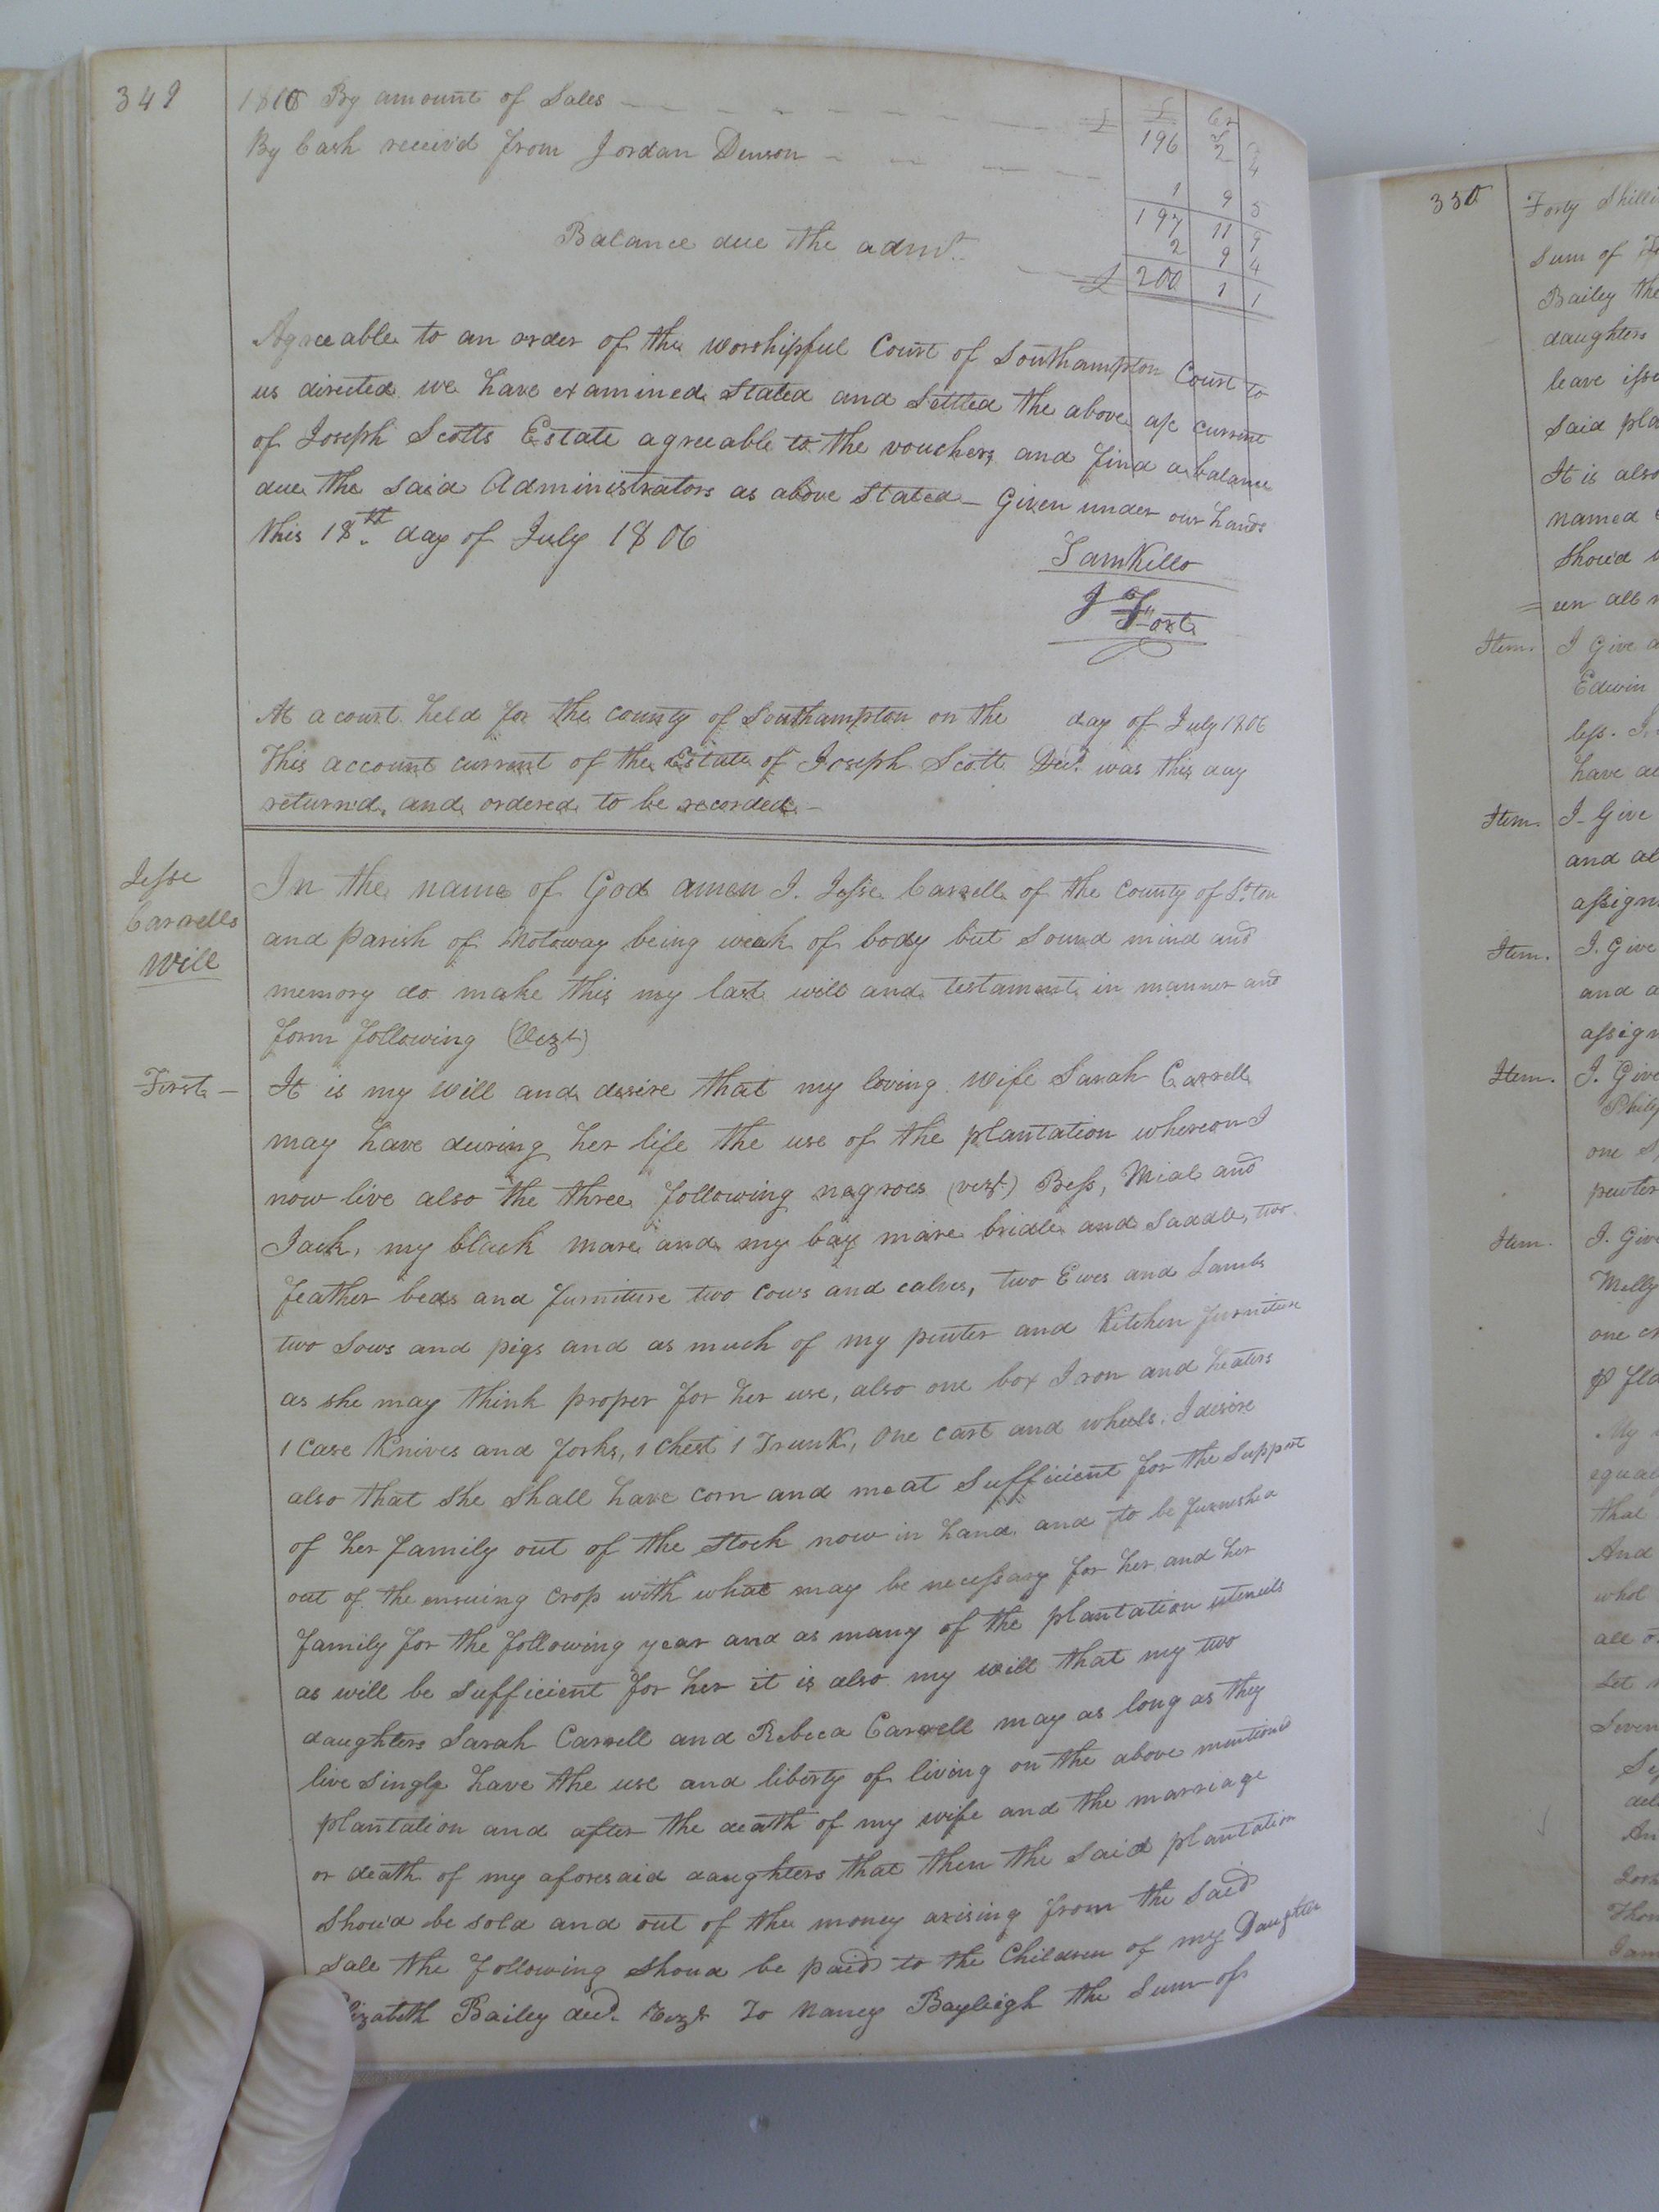 349
1806 By amount of Sales £ 196 2 4
By Cash receiv'd from Jordan Denson 1 9 5
197 11 9
Balance due the admr. 2 9 4
£ 200 1 1
Agreeable to an order of the worshipful Court of Southampton Court to
us directed we have examined Stated and Settled the above a/c current
of Joseph Scotts Estate agreeable to the vouchers and find a balance
due the said Administrators as above Stated — Given under our hands
this 18th day of July 1806
Sam Kello
J Fort
At a court held for the county of Southampton on the day of July 1806
This account current of the Estate of Joseph Scott Decd. was this day
return'd, and ordered to be recorded —
Jesse
Carrells
Will
In the name of God amen I. Jesse Carrell of the County of S.ton
and Parish of Notoway being weak of body but Sound mind and
memory do make this my last will and testament in manner and
form following (Vizt)
First —
It is my Will and desire that my loving wife Sarah Carrell
may have during her life the use of the plantation whereon I
now live also the three following negroes (vizt) Bess, Mial and
Jack, my black mare and my bay mare bridle and Saddle, two
feather beds and furniture two cows and calves, two Ewes and Lambs
two Sows and pigs and as much of my pewter and Kitchen furniture
as she may think proper for her use, also one box Iron and heaters
1 Case Knives and forks, 1 Chest 1 Trunk, One cart and wheels, I desire
also that She Shall have corn and meat Sufficient for the Support
of her family out of the Stock now in hand and to be furnished
out of the ensuing Crop with what may be necessary for her and her
family for the following year and as many of the plantation utensils
as will be Sufficient for her it is also my will that my two
daughters Sarah Carrell and Rebeca Carrell may as long as they
live Single have the use and liberty of living on the above mentioned
plantation and after the death of my wife and the marriage
or death of my aforesaid daughters that then the Said plantation
Shou'd be sold and out of the money arising from the Said
Sale the following Shoud be paid to the Children of my Daughter
Elizabeth Bailey decd. Vizt To Nancy Bayleigh the Sum of
350
Forty Shilli
Sum of
Bailey the
daughters
leave issu
Said pla
It is also
named
Shou'd
un all
Item. I Give a
Edwin
less. I
have
Item. I Give
and al
assign
Item. I. Give
and a
assign
Item. I. Give
Phil
one S
pewter
Item. I. Give
Milly
one
My
equal
that
And
whol
all o
Set
Seven